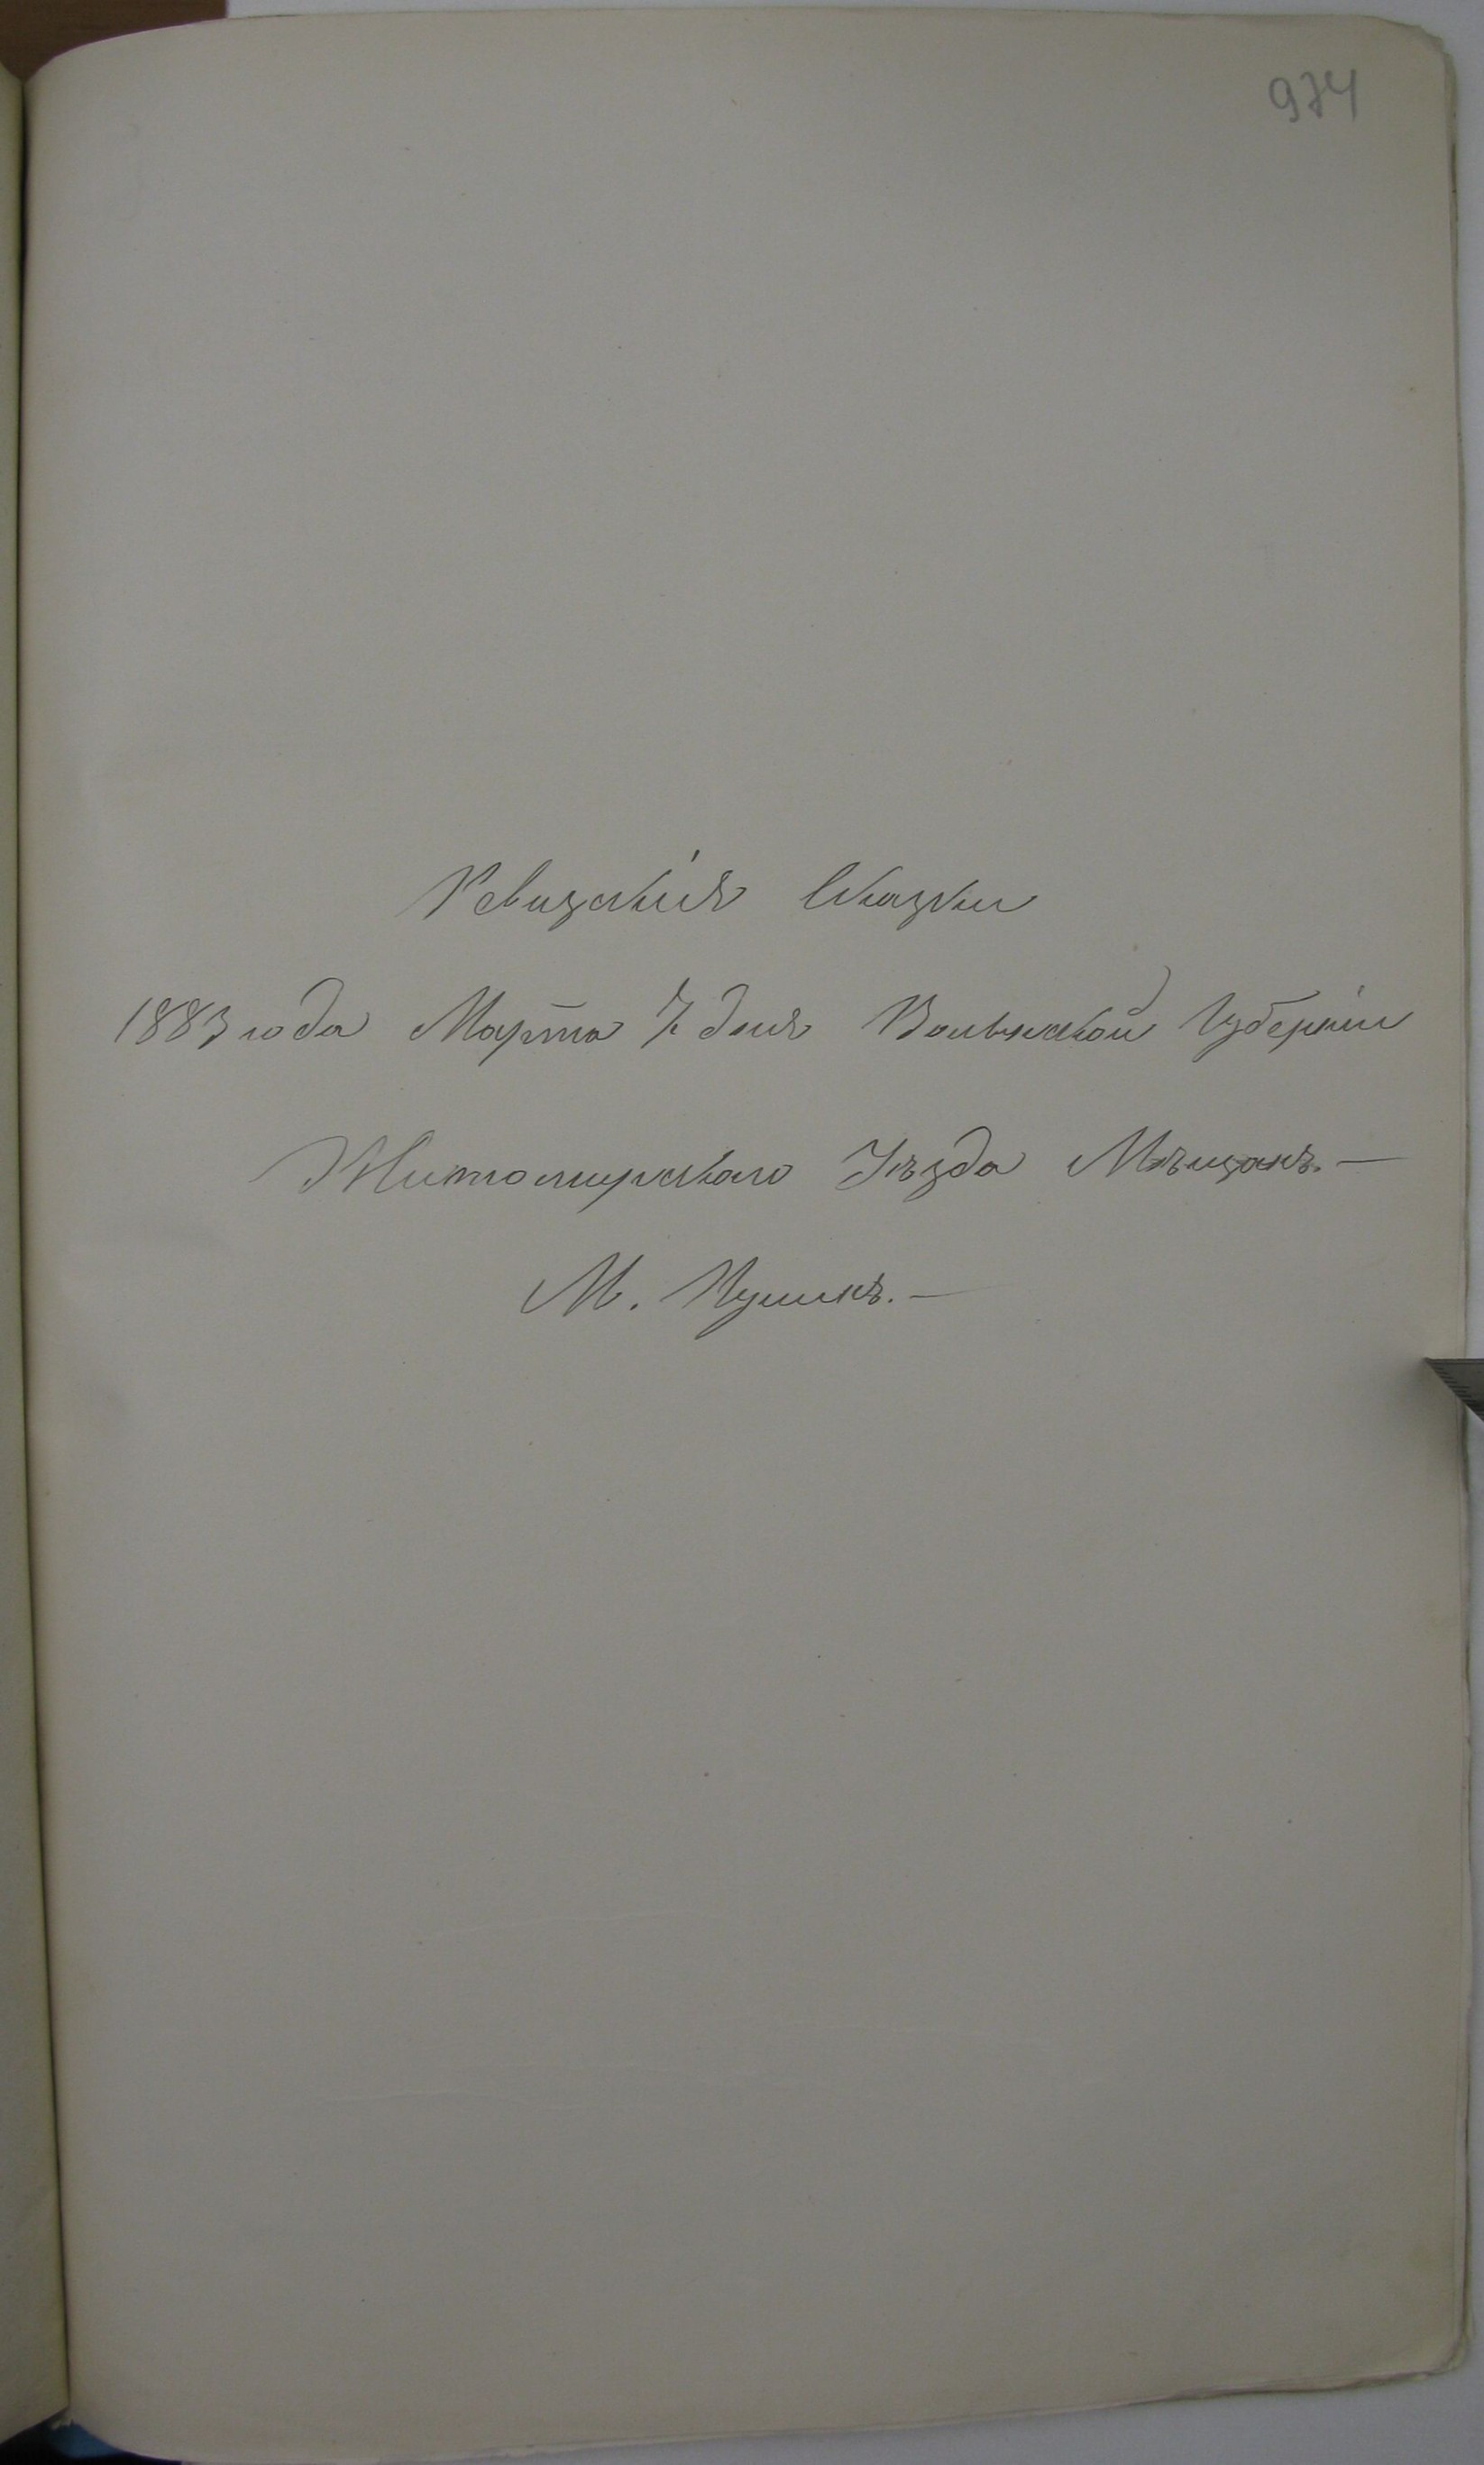 974
Ревизскія Сказки
1883 года Марта 7 дня Волынской Губерніи
Житомирскаго Уѣзда Мѣщанъ. —
М. Пулинъ. —